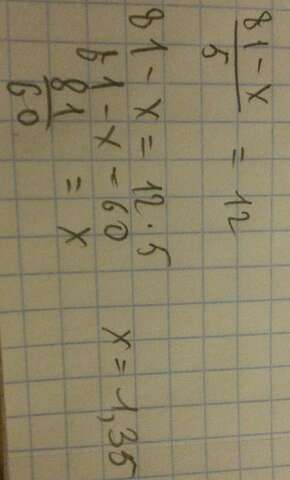 81 - x
5
= 12
81 - x = 12 · 5
81 - x = 60
81
60
= x
x = 1,35